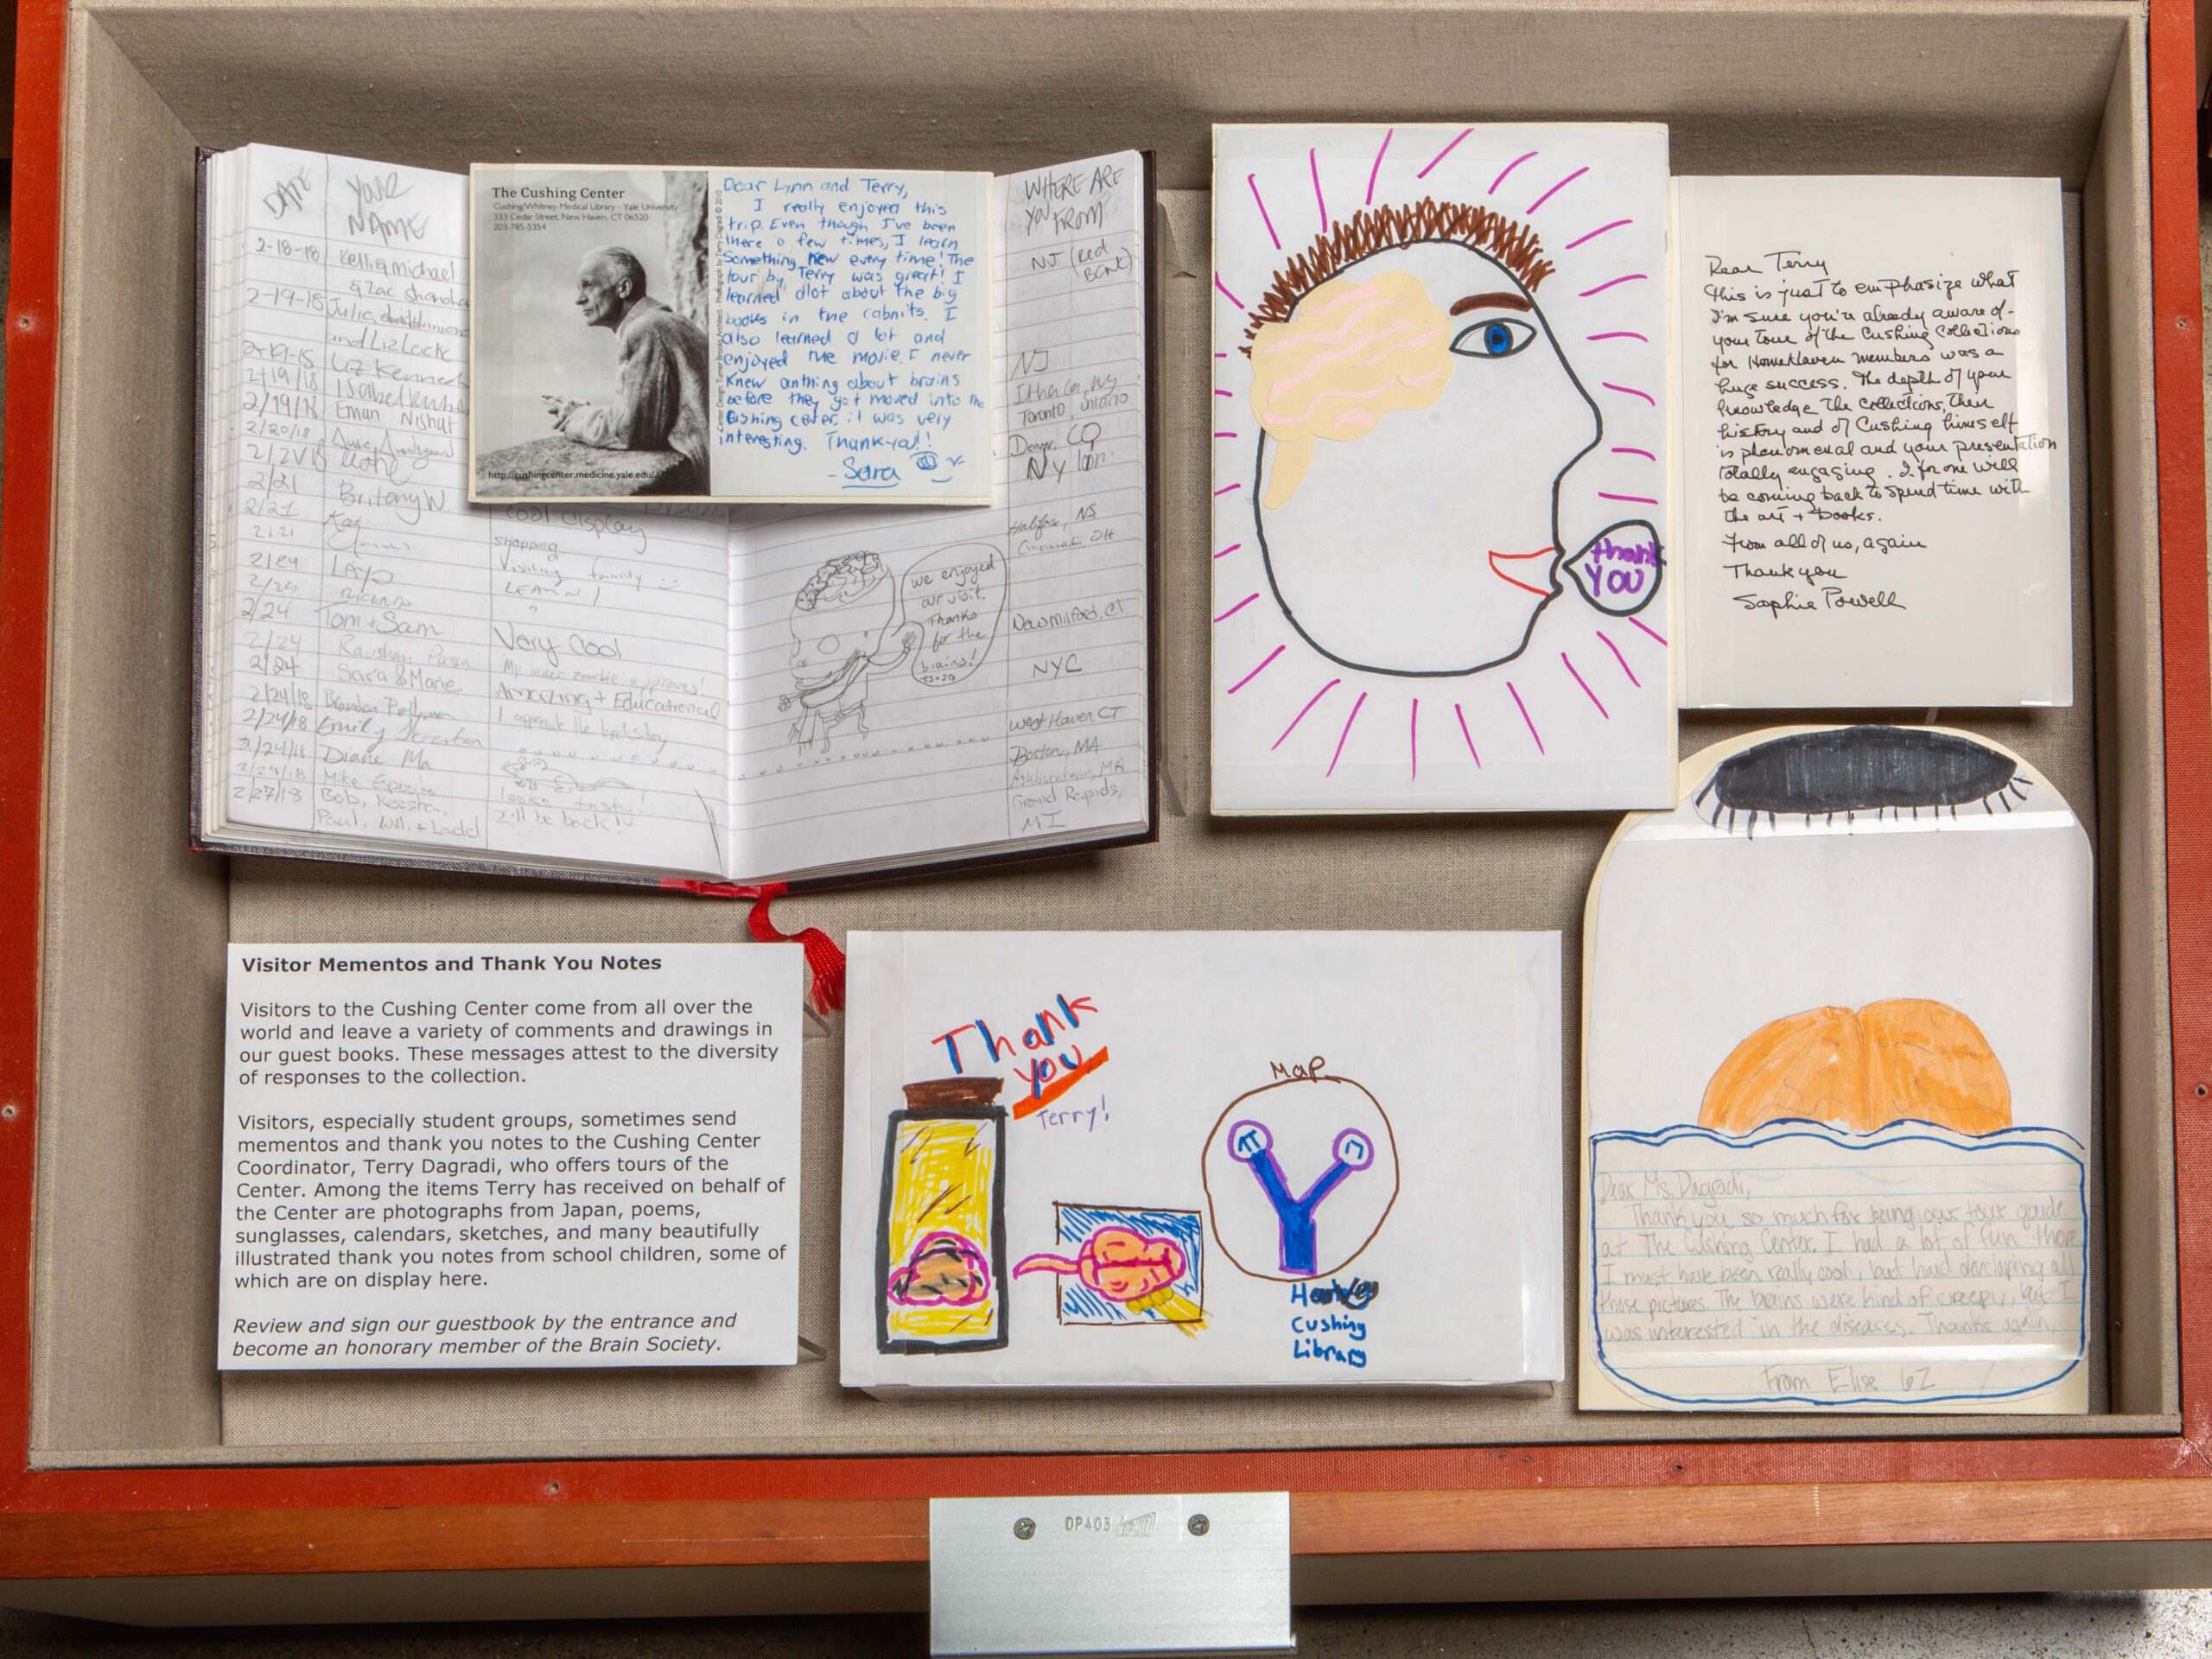 DATE
YOUR NAME
WHERE ARE YOU FROM
2-18-18 Kelli & michael
& Zac
NJ (Red Bank)
2-19-18 Julia
and Liz Locke
2-19-18 Liz
NJ
2/19/18 Isabel
Ithaca, NY
2/19/18 Eman Nishat
Toronto, Ontario
2/20/18
Denver, CO
NY
2/21 Britany W.
2/21 Kat
cool display
Halifax, NS
2/21
shopping
Cincinnati, OH
2/24
Visiting family
LEARN!
2/24 Tom + Sam
Very Cool
New Milford, CT
2/24
My inner zombie approves!
2/24 Sara & Marie
Amazing + Educational
NYC
2/24/18 Brandon
I appreciate the
2/24/18 Emily
West Haven CT
2/24/18 Diane Ma
Boston, MA
2/24/18 Mike
Ashburnham, MA
2/27/18 Bob, Keesha,
looks tasty!
Grand Rapids,
Paul, Will, + Ladd
I'll be back!
MI
we enjoyed
our visit.
Thanks
for the
brains!
The Cushing Center
Cushing/Whitney Medical Library - Yale University
333 Cedar Street, New Haven, CT 06520
203-785-5354
http://cushingcenter.medicine.yale.edu/
Center Design: Turner Brooks Architect - Photograph by Terry Dagradi © 2010
Dear Lynn and Terry,
I really enjoyed this
trip. Even though I've been
there a few times, I learn
Something new every time! The
tour by Terry was great! I
learned alot about the big
books in the cabnits. I
also learned a lot and
enjoyed the movie. I never
knew anthing about brains
before they got moved into the
Cushing center, it was very
interesting. Thank-you!!
- Sara
thank
YOU
Dear Terry
This is just to emphasize what
I'm sure you're already aware of -
your tour of the Cushing Collections
for HomeHaven members was a
huge success. The depth of your
knowledge the collections, their
history and of Cushing himself
is phenomenal and your presentation
totally engaging. I for one will
be coming back to spend time with
the art + books.
From all of us, again
Thank you
Sophie Powell
Visitor Mementos and Thank You Notes
Visitors to the Cushing Center come from all over the
world and leave a variety of comments and drawings in
our guest books. These messages attest to the diversity
of responses to the collection.
Visitors, especially student groups, sometimes send
mementos and thank you notes to the Cushing Center
Coordinator, Terry Dagradi, who offers tours of the
Center. Among the items Terry has received on behalf of
the Center are photographs from Japan, poems,
sunglasses, calendars, sketches, and many beautifully
illustrated thank you notes from school children, some of
which are on display here.
Review and sign our guestbook by the entrance and
become an honorary member of the Brain Society.
Thank
you
Terry!
Map
Harvey
Cushing
Library
Dear Ms. Dagradi,
Thank you so much for being our tour guide
at The Cushing Center. I had a lot of fun there
I must have been really cool, but hard developing all
those pictures. The brains were kind of creepy, but I
was interested in the diseases. Thanks again,
From Elise 6Z
OP403